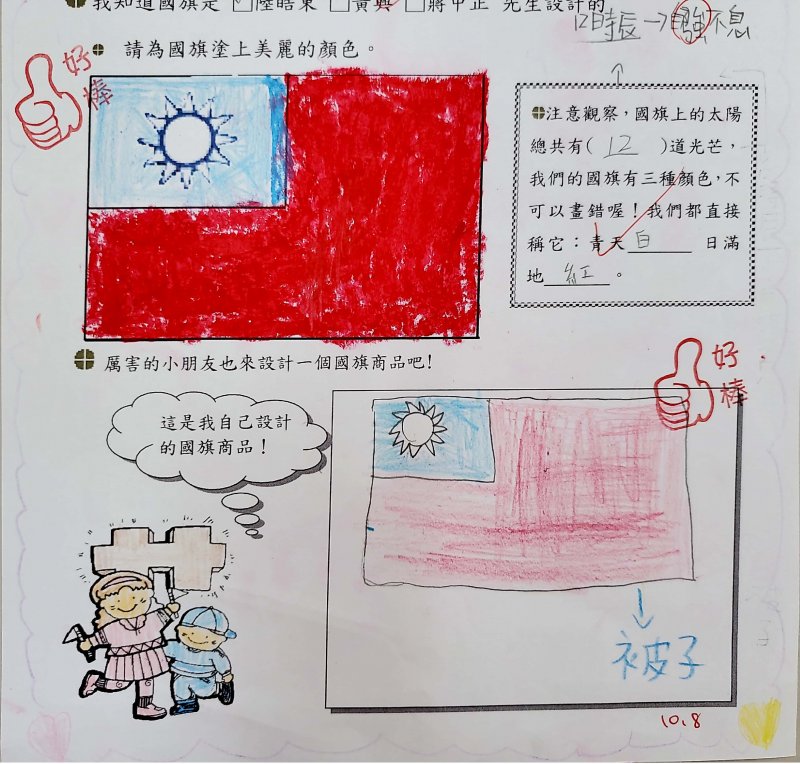 我知道國旗是 ☑陸皓東 □黃興 □蔣中正 先生設計的
12時辰→自強不息
請為國旗塗上美麗的顏色。
好棒
注意觀察，國旗上的太陽
總共有( 12 )道光芒，
我們的國旗有三種顏色，不
可以畫錯喔！我們都直接
稱它：青天白 日滿
地紅。
厲害的小朋友也來設計一個國旗商品吧！
好棒
這是我自己設計
的國旗商品！
被子
10.8